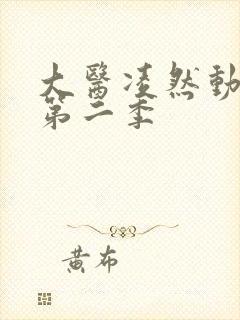 大醫凌然動
第二季
黃布